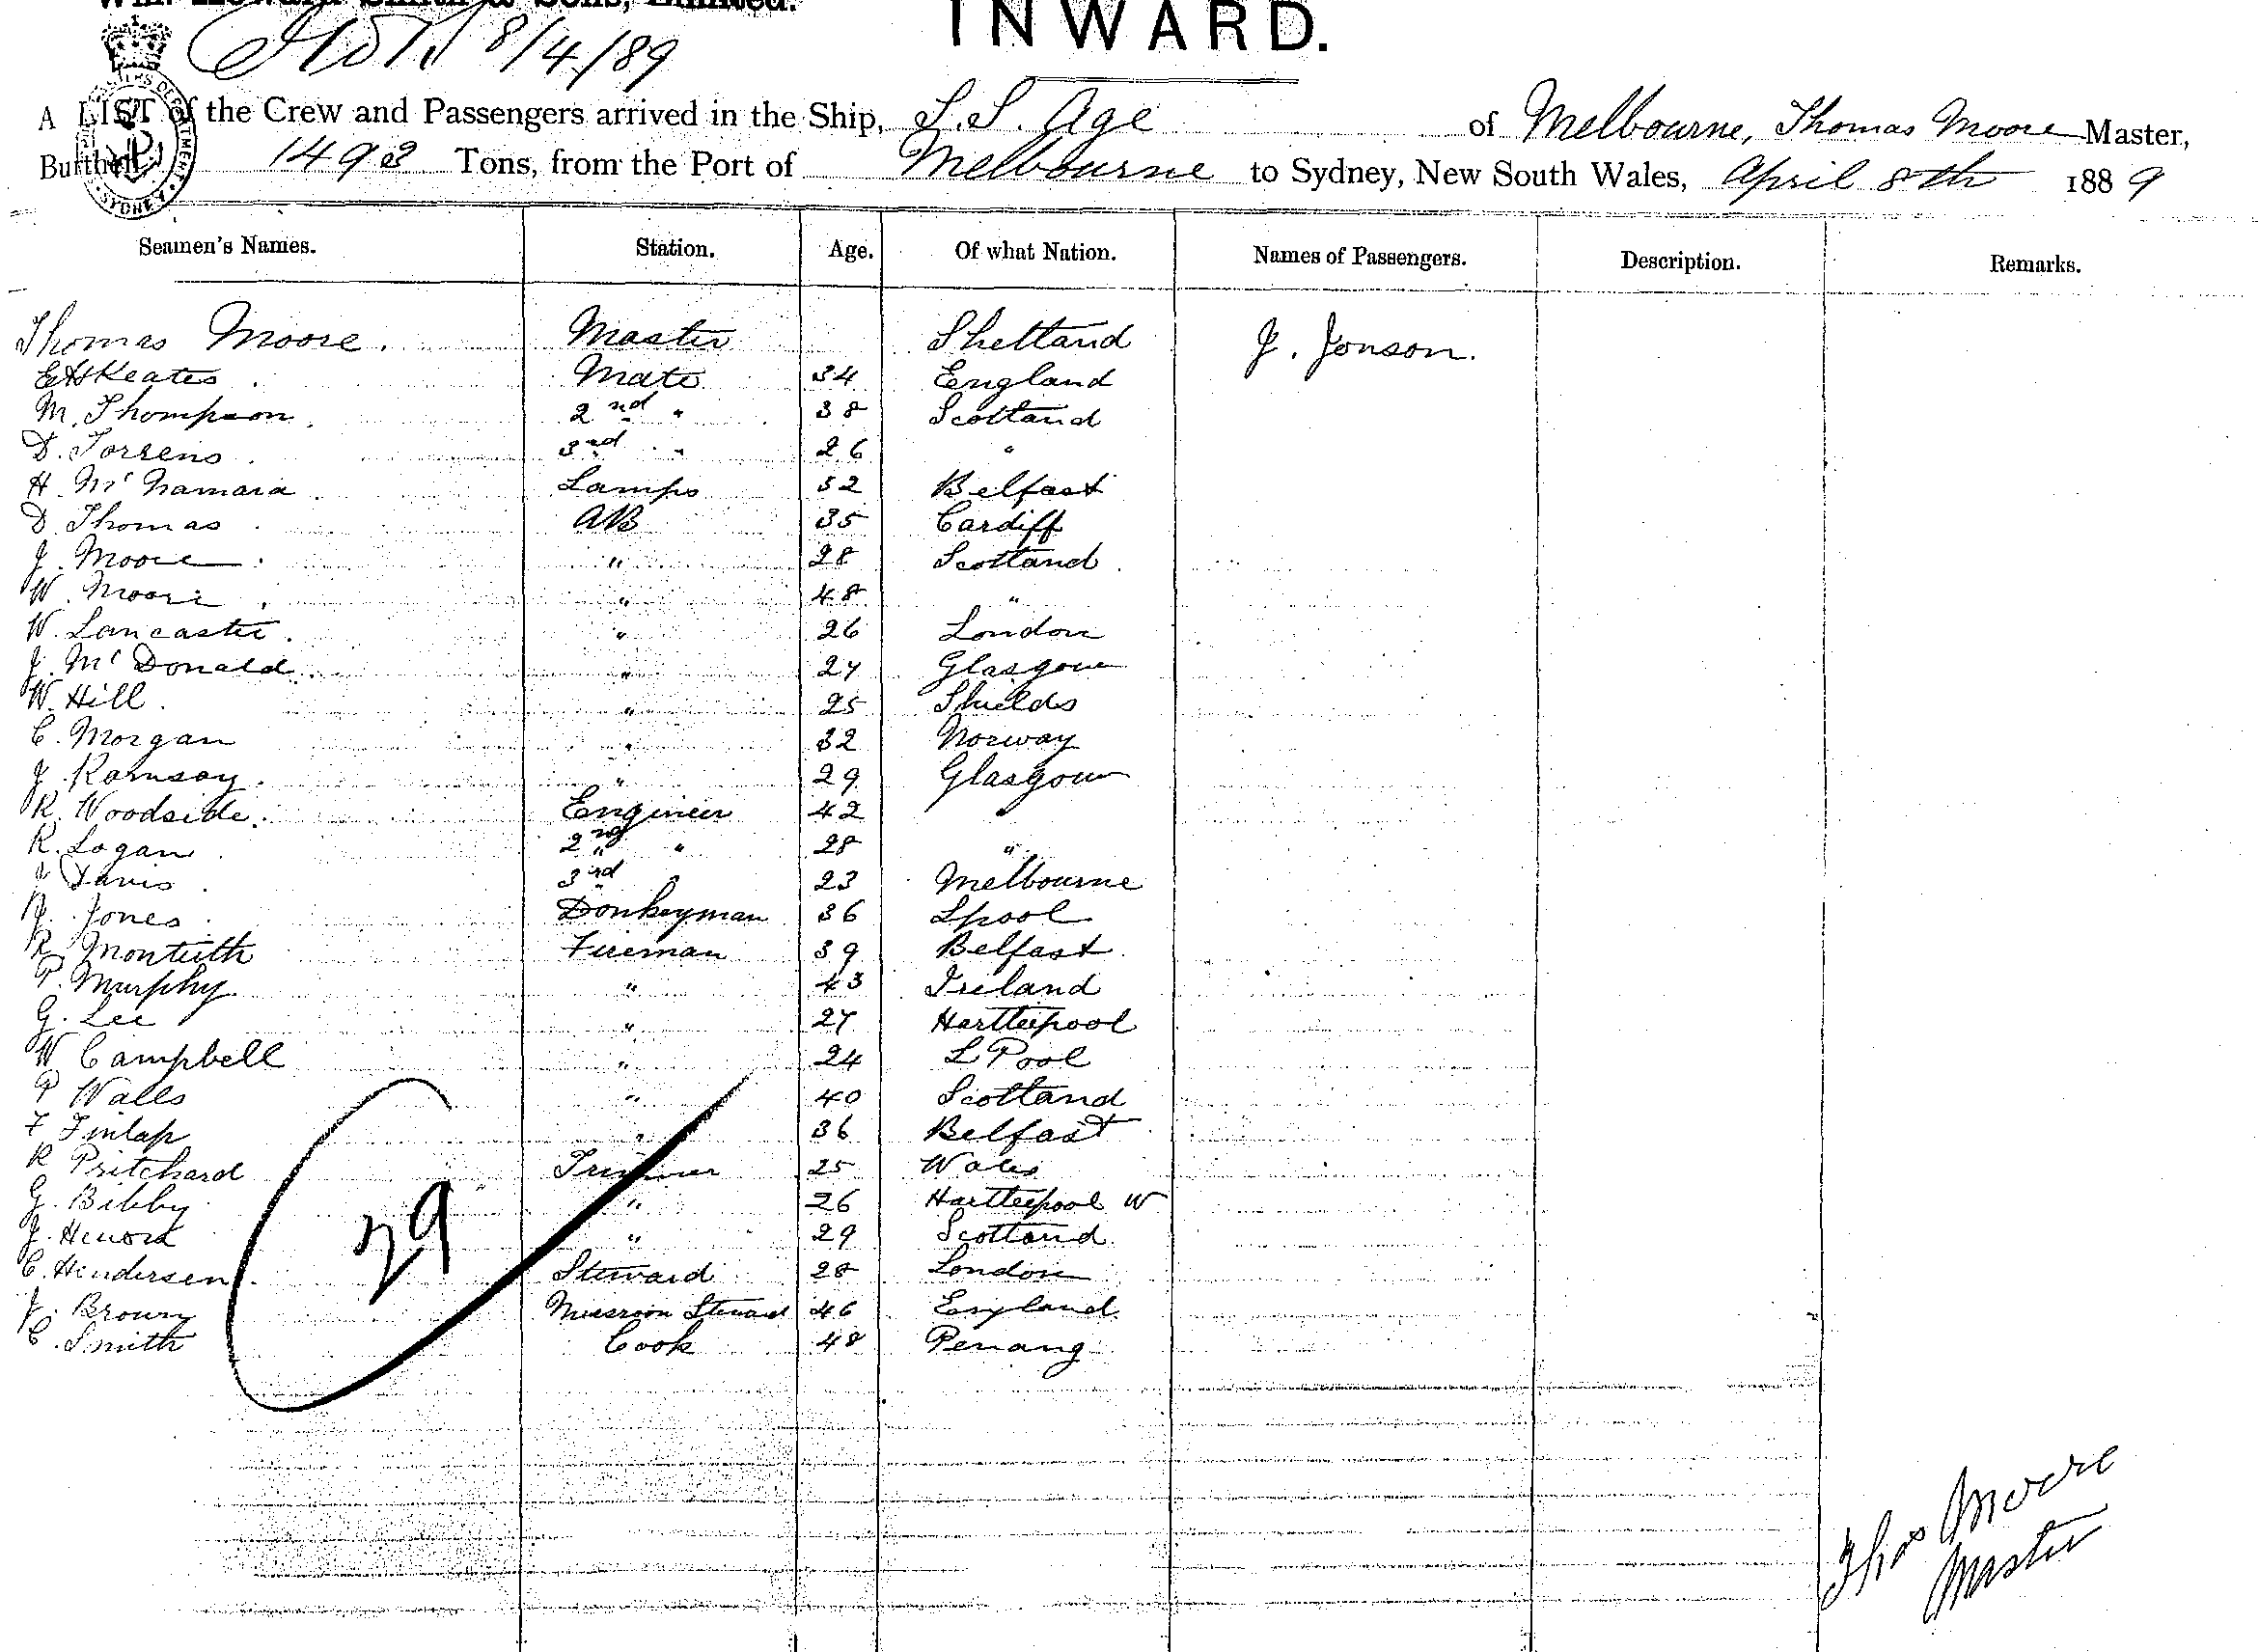 Wm. Howard Smith & Sons, Limited.
INWARD.
8/4/89
A LIST of the Crew and Passengers arrived in the Ship, S.S. Age of Melbourne, Thomas Moore Master,
Burthen 1493 Tons, from the Port of Melbourne to Sydney, New South Wales, April 8th 1889
SYDNEY
Seamen's Names. Station. Age. Of what Nation. Names of Passengers. Description. Remarks.
Thomas Moore. Master Shetland J. Jonson.
E H Keates Mate 34 England
M. Thompson 2nd " 38 Scotland
D. Torrens 3rd " 26 "
H. McNamara Lamps 52 Belfast
D. Thomas AB 35 Cardiff
J. Moore " 28 Scotland
W. Moore " 48 "
W. Lancaster " 26 London
J. McDonald " 27 Glasgow
W. Hill " 25 Shields
C. Morgan " 32 Norway
J. Ramsay " 29 Glasgow
R. Woodside Engineer 42 "
R. Logan 2nd " 28 "
J Davis 3rd " 23 Melbourne
J. Jones Donkeyman 36 Lpool
R. Monteith Fireman 39 Belfast
P. Murphy " 43 Ireland
G. Lee " 27 Hartlepool
W Campbell " 24 L Pool
P Walls " 40 Scotland
F Finlap " 36 Belfast
R Pritchard Trimmer 25 Wales
G. Bibby " 26 Hartlepool W
J. " 29 Scotland
C. Hendersen Steward 28 London
J. Brown Messroom Steward 46 England
C. Smith Cook 48 Penang
29
Thos Moore
Master